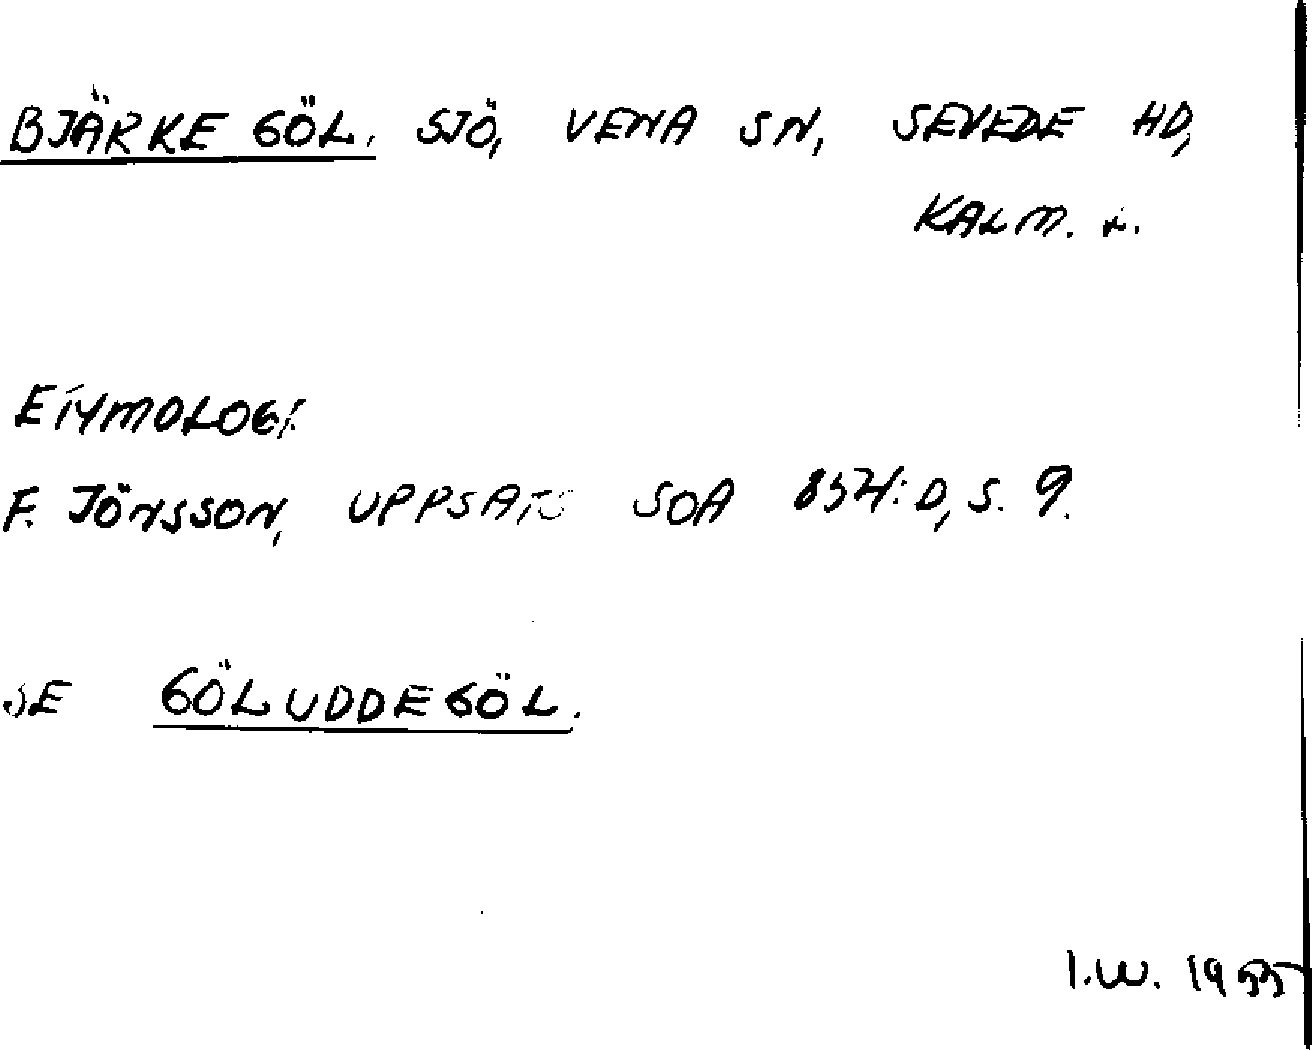 BJÄRKE GÖL. SJÖ, VENA SN, SEVEDE HD,
KALM. L.
ETYMOLOGI
F. JÖNSSON, UPPSATS SOA D, S. 9.
SE GÖLUDDEGÖL.
I.W. 1955